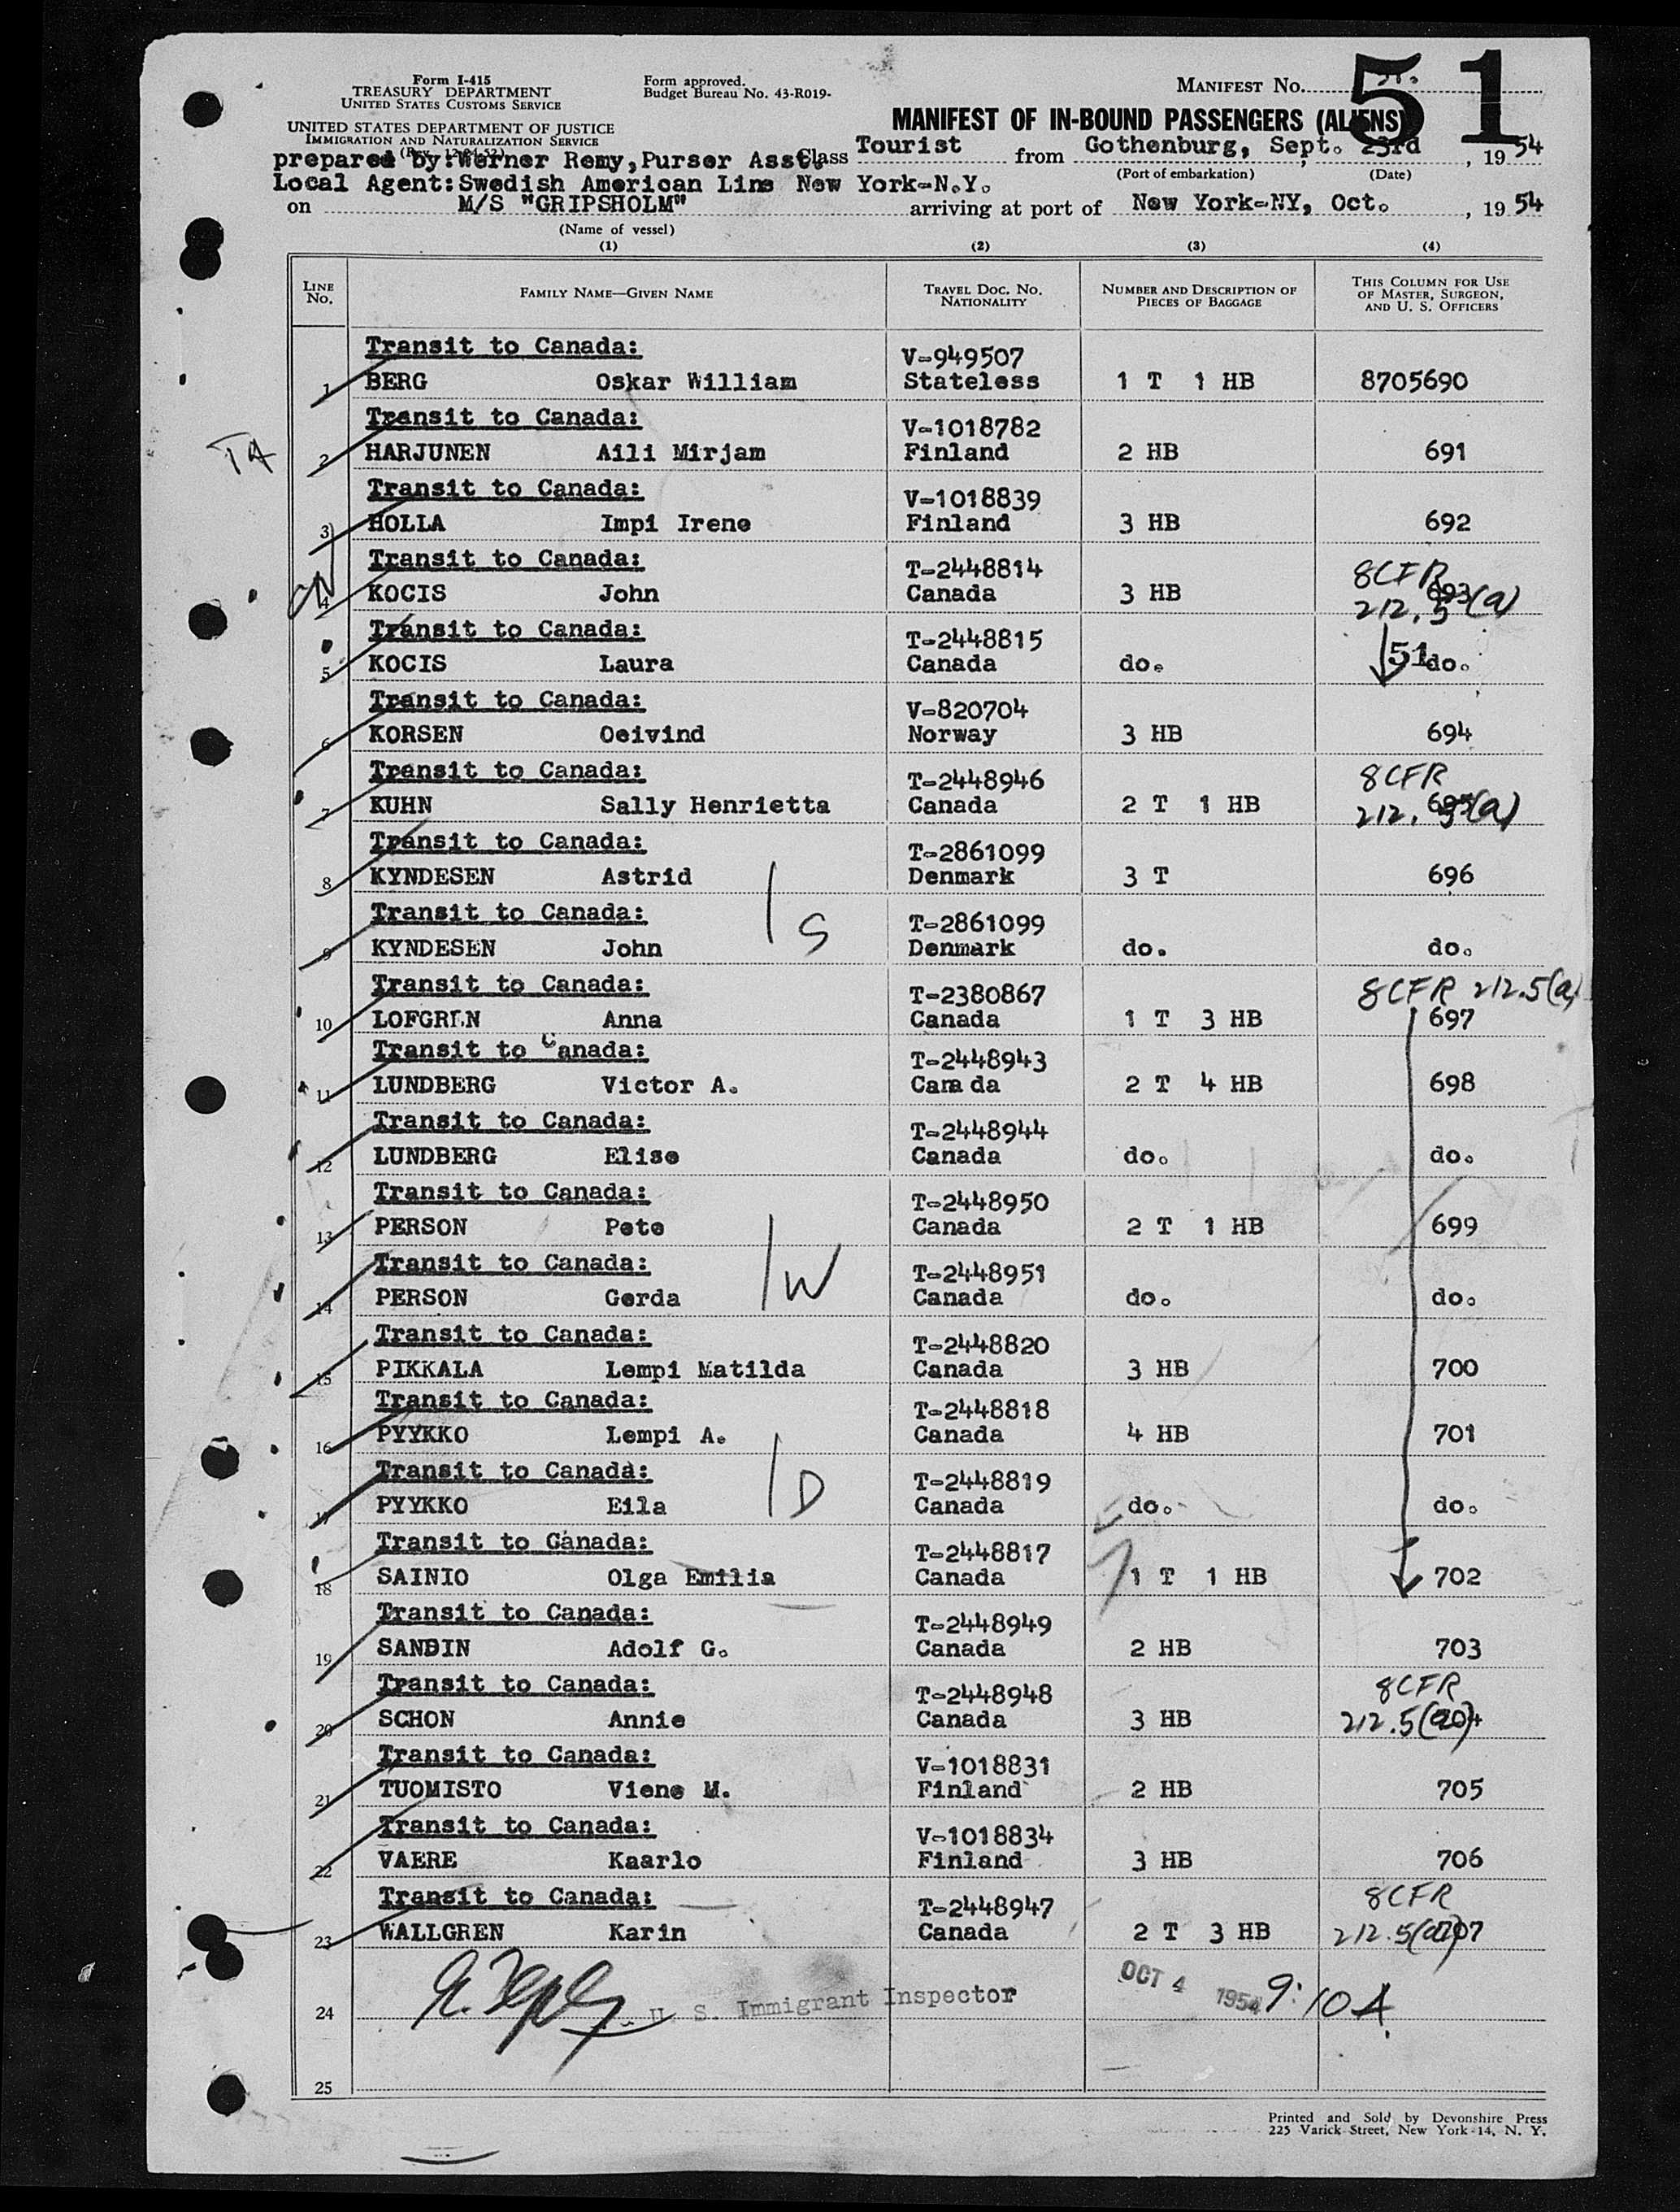 Form I-415
TREASURY DEPARTMENT
UNITED STATES CUSTOMS SERVICE
Form approved.
Budget Bureau No. 43-R019-
MANIFEST No.
51
UNITED STATES DEPARTMENT OF JUSTICE
IMMIGRATION AND NATURALIZATION SERVICE
MANIFEST OF IN-BOUND PASSENGERS (ALIENS)
prepared by:Werner Remy,Purser Asst. Class Tourist from Gothenburg, Sept. 23rd, 1954
(Port of embarkation) (Date)
Local Agent:Swedish American Line New York-N.Y.
on M/S "GRIPSHOLM" arriving at port of New York-NY, Oct. , 1954
(Name of vessel)
(1) (2) (3) (4)
LINE No. FAMILY NAME—GIVEN NAME TRAVEL DOC. NO. NATIONALITY NUMBER AND DESCRIPTION OF PIECES OF BAGGAGE THIS COLUMN FOR USE OF MASTER, SURGEON, AND U. S. OFFICERS
Transit to Canada: V-949507
1 BERG Oskar William Stateless 1 T 1 HB 8705690
Transit to Canada: V-1018782
TA 2 HARJUNEN Aili Mirjam Finland 2 HB 691
Transit to Canada: V-1018839
3 HOLLA Impi Irene Finland 3 HB 692
Transit to Canada: T-2448814 8CFR
4 KOCIS John Canada 3 HB 693 212.5(a)
Transit to Canada: T-2448815
5 KOCIS Laura Canada do. 51 do.
Transit to Canada: V-820704
6 KORSEN Oeivind Norway 3 HB 694
Transit to Canada: T-2448946 8CFR
7 KUHN Sally Henrietta Canada 2 T 1 HB 695 212.5(a)
Transit to Canada: T-2861099
8 KYNDESEN Astrid Denmark 3 T 696
Transit to Canada: T-2861099
9 KYNDESEN John S Denmark do. do.
Transit to Canada: T-2380867 8CFR 212.5(a)
10 LOFGREN Anna Canada 1 T 3 HB 697
Transit to Canada: T-2448943
11 LUNDBERG Victor A. Cam da 2 T 4 HB 698
Transit to Canada: T-2448944
12 LUNDBERG Elise Canada do. do.
Transit to Canada: T-2448950
13 PERSON Pete Canada 2 T 1 HB 699
Transit to Canada: T-2448951
14 PERSON Gerda W Canada do. do.
Transit to Canada: T-2448820
15 PIKKALA Lempi Matilda Canada 3 HB 700
Transit to Canada: T-2448818
16 PYYKKO Lempi A. Canada 4 HB 701
Transit to Canada: T-2448819
17 PYYKKO Eila D Canada do. do.
Transit to Canada: T-2448817
18 SAINIO Olga Emilia Canada 1 T 1 HB 702
Transit to Canada: T-2448949
19 SANDIN Adolf G. Canada 2 HB 703
Transit to Canada: T-2448948 8CFR
20 SCHON Annie Canada 3 HB 212.5(a) 704
Transit to Canada: V-1018831
21 TUOMISTO Viene M. Finland 2 HB 705
Transit to Canada: V-1018834
22 VAERE Kaarlo Finland 3 HB 706
Transit to Canada: T-2448947 8CFR
23 WALLGREN Karin Canada 2 T 3 HB 212.5(a) 707
24 U. S. Immigrant Inspector OCT 4 1954 9:10 A.
25
Printed and Sold by Devonshire Press
225 Varick Street, New York 14, N. Y.